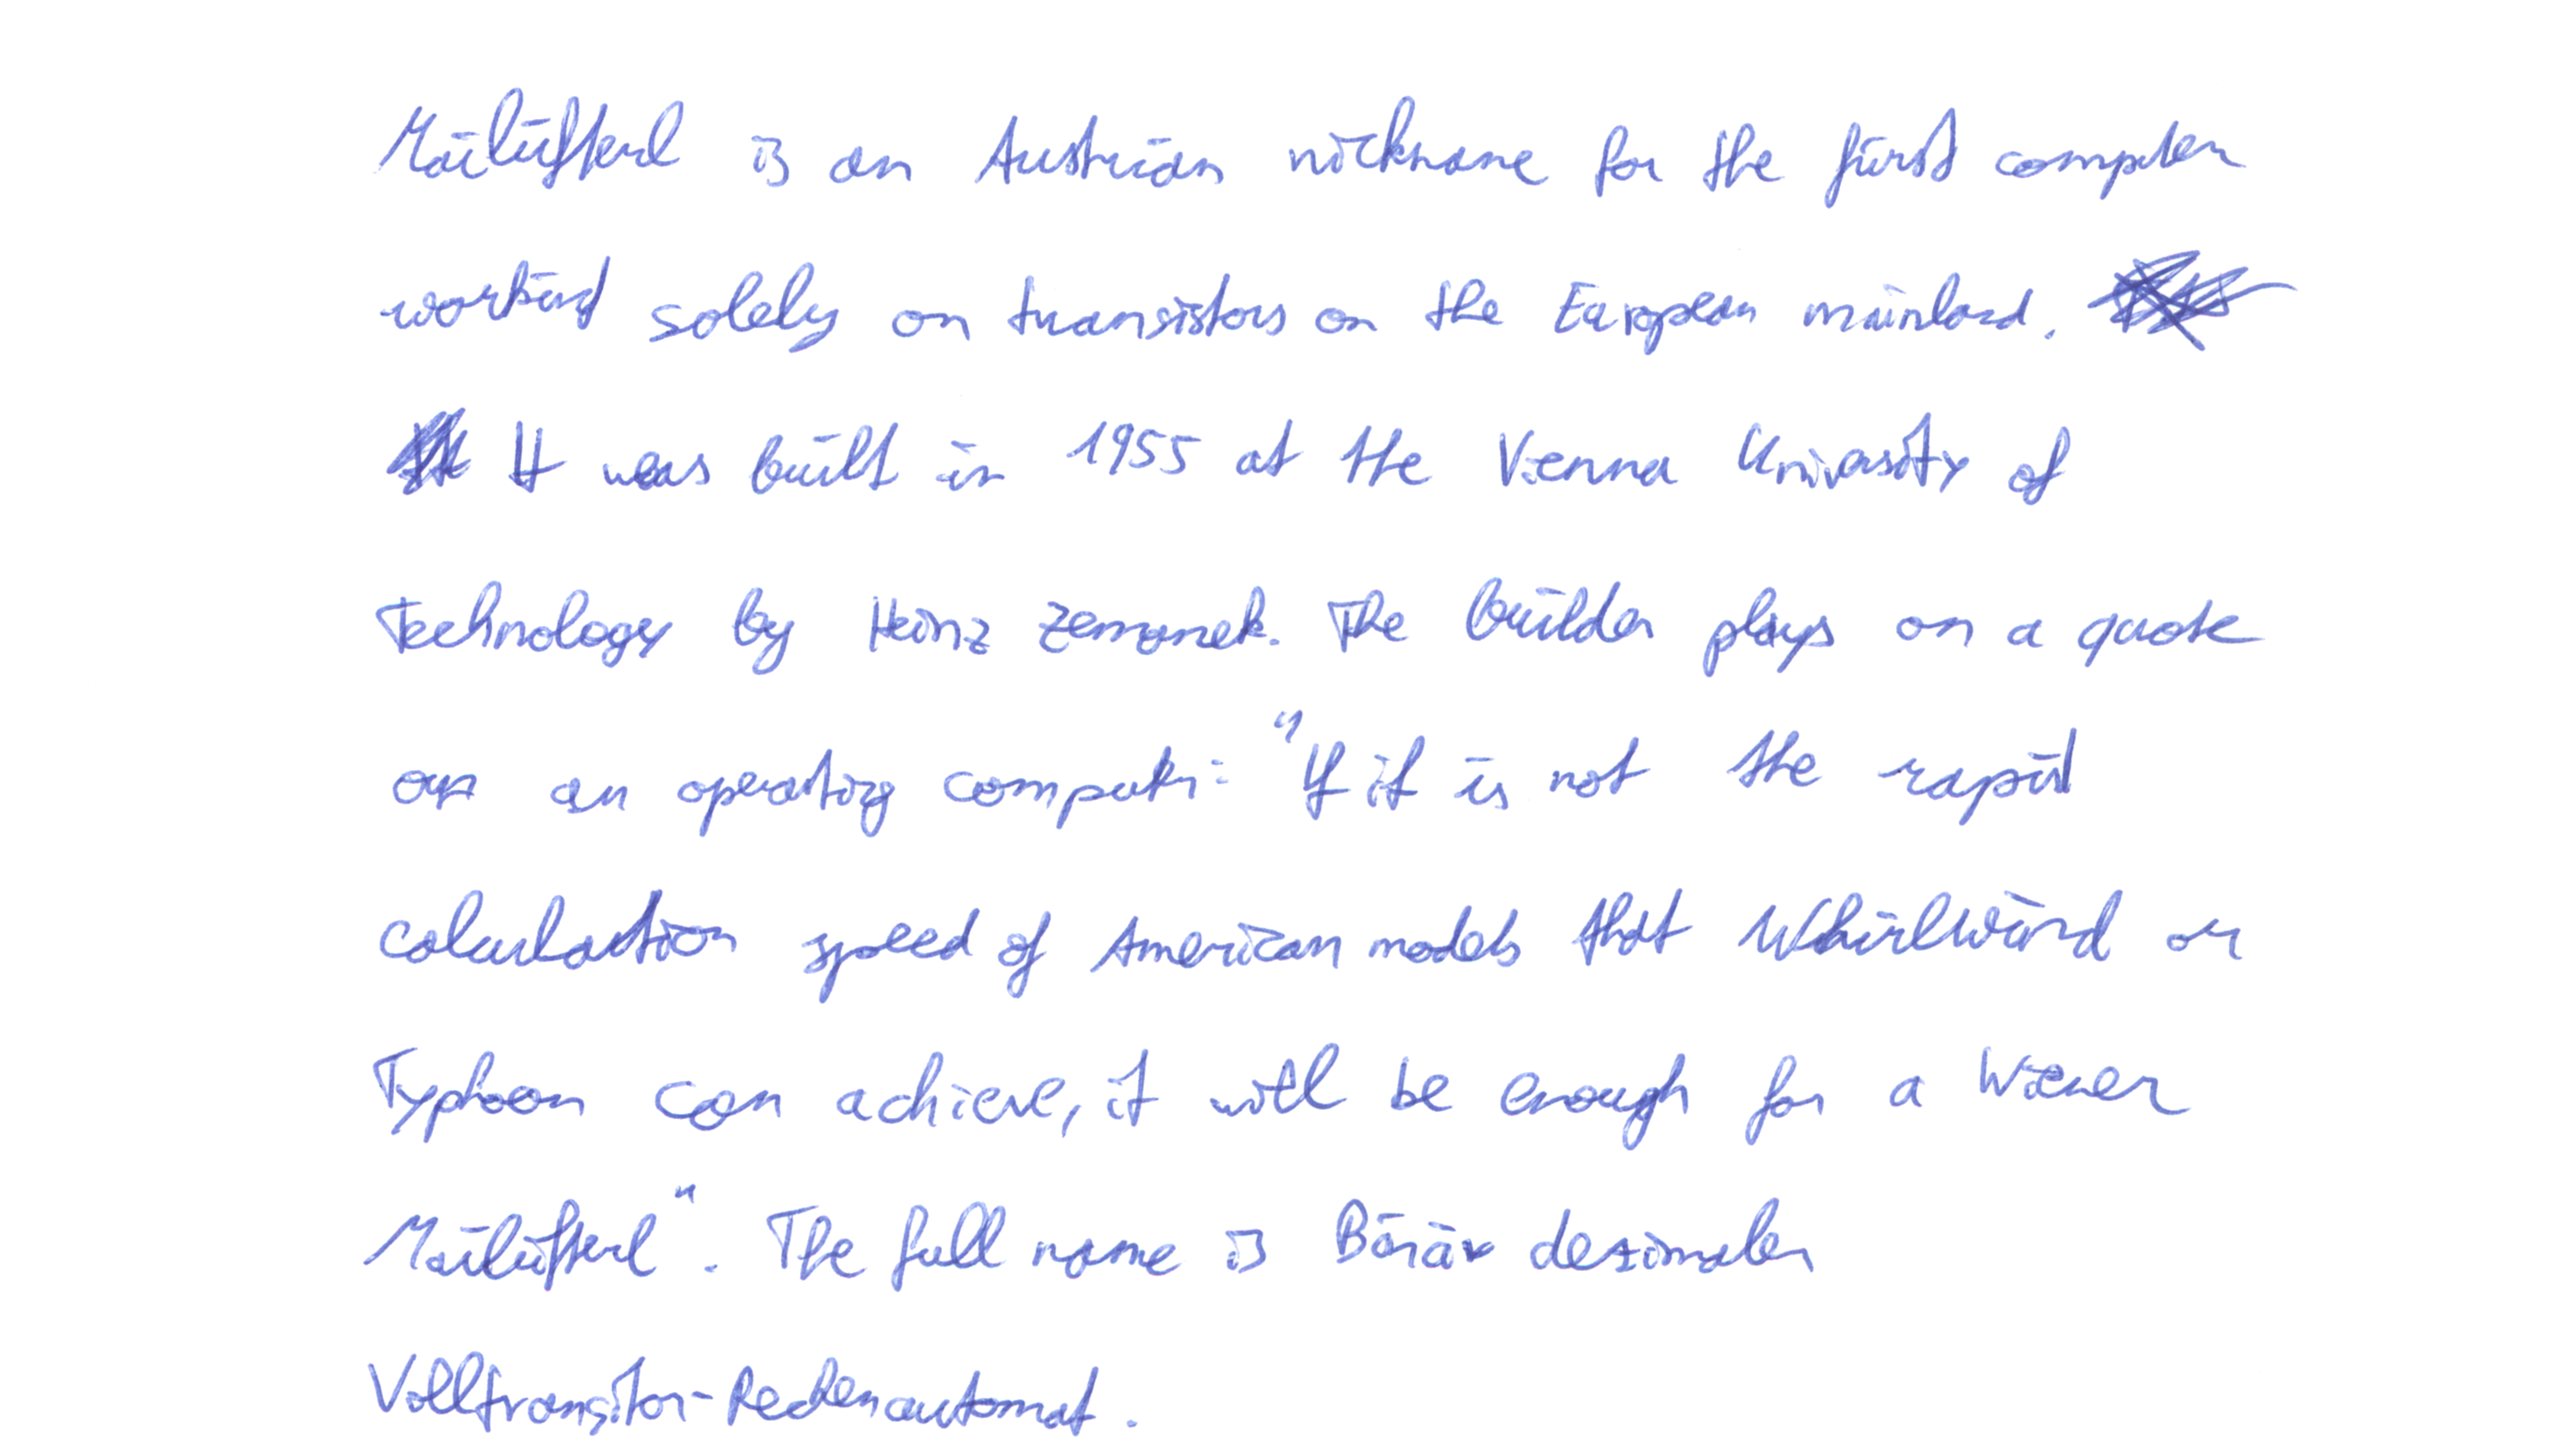 Mailüfterl is an Austrian nickname for the first computer
working solely on transistors on the European mainland.
It was built in 1955 at the Vienna University of
Technology by Heinz Zemanek. The builder plays on a quote
on an operating computer: "If it is not the rapid
calculation speed of American models that Whirlwind or
Typhoon can achieve, it will be enough for a Wiener
Mailüfterl". The full name is Binär dezimaler
Volltransistor-Rechenautomat.